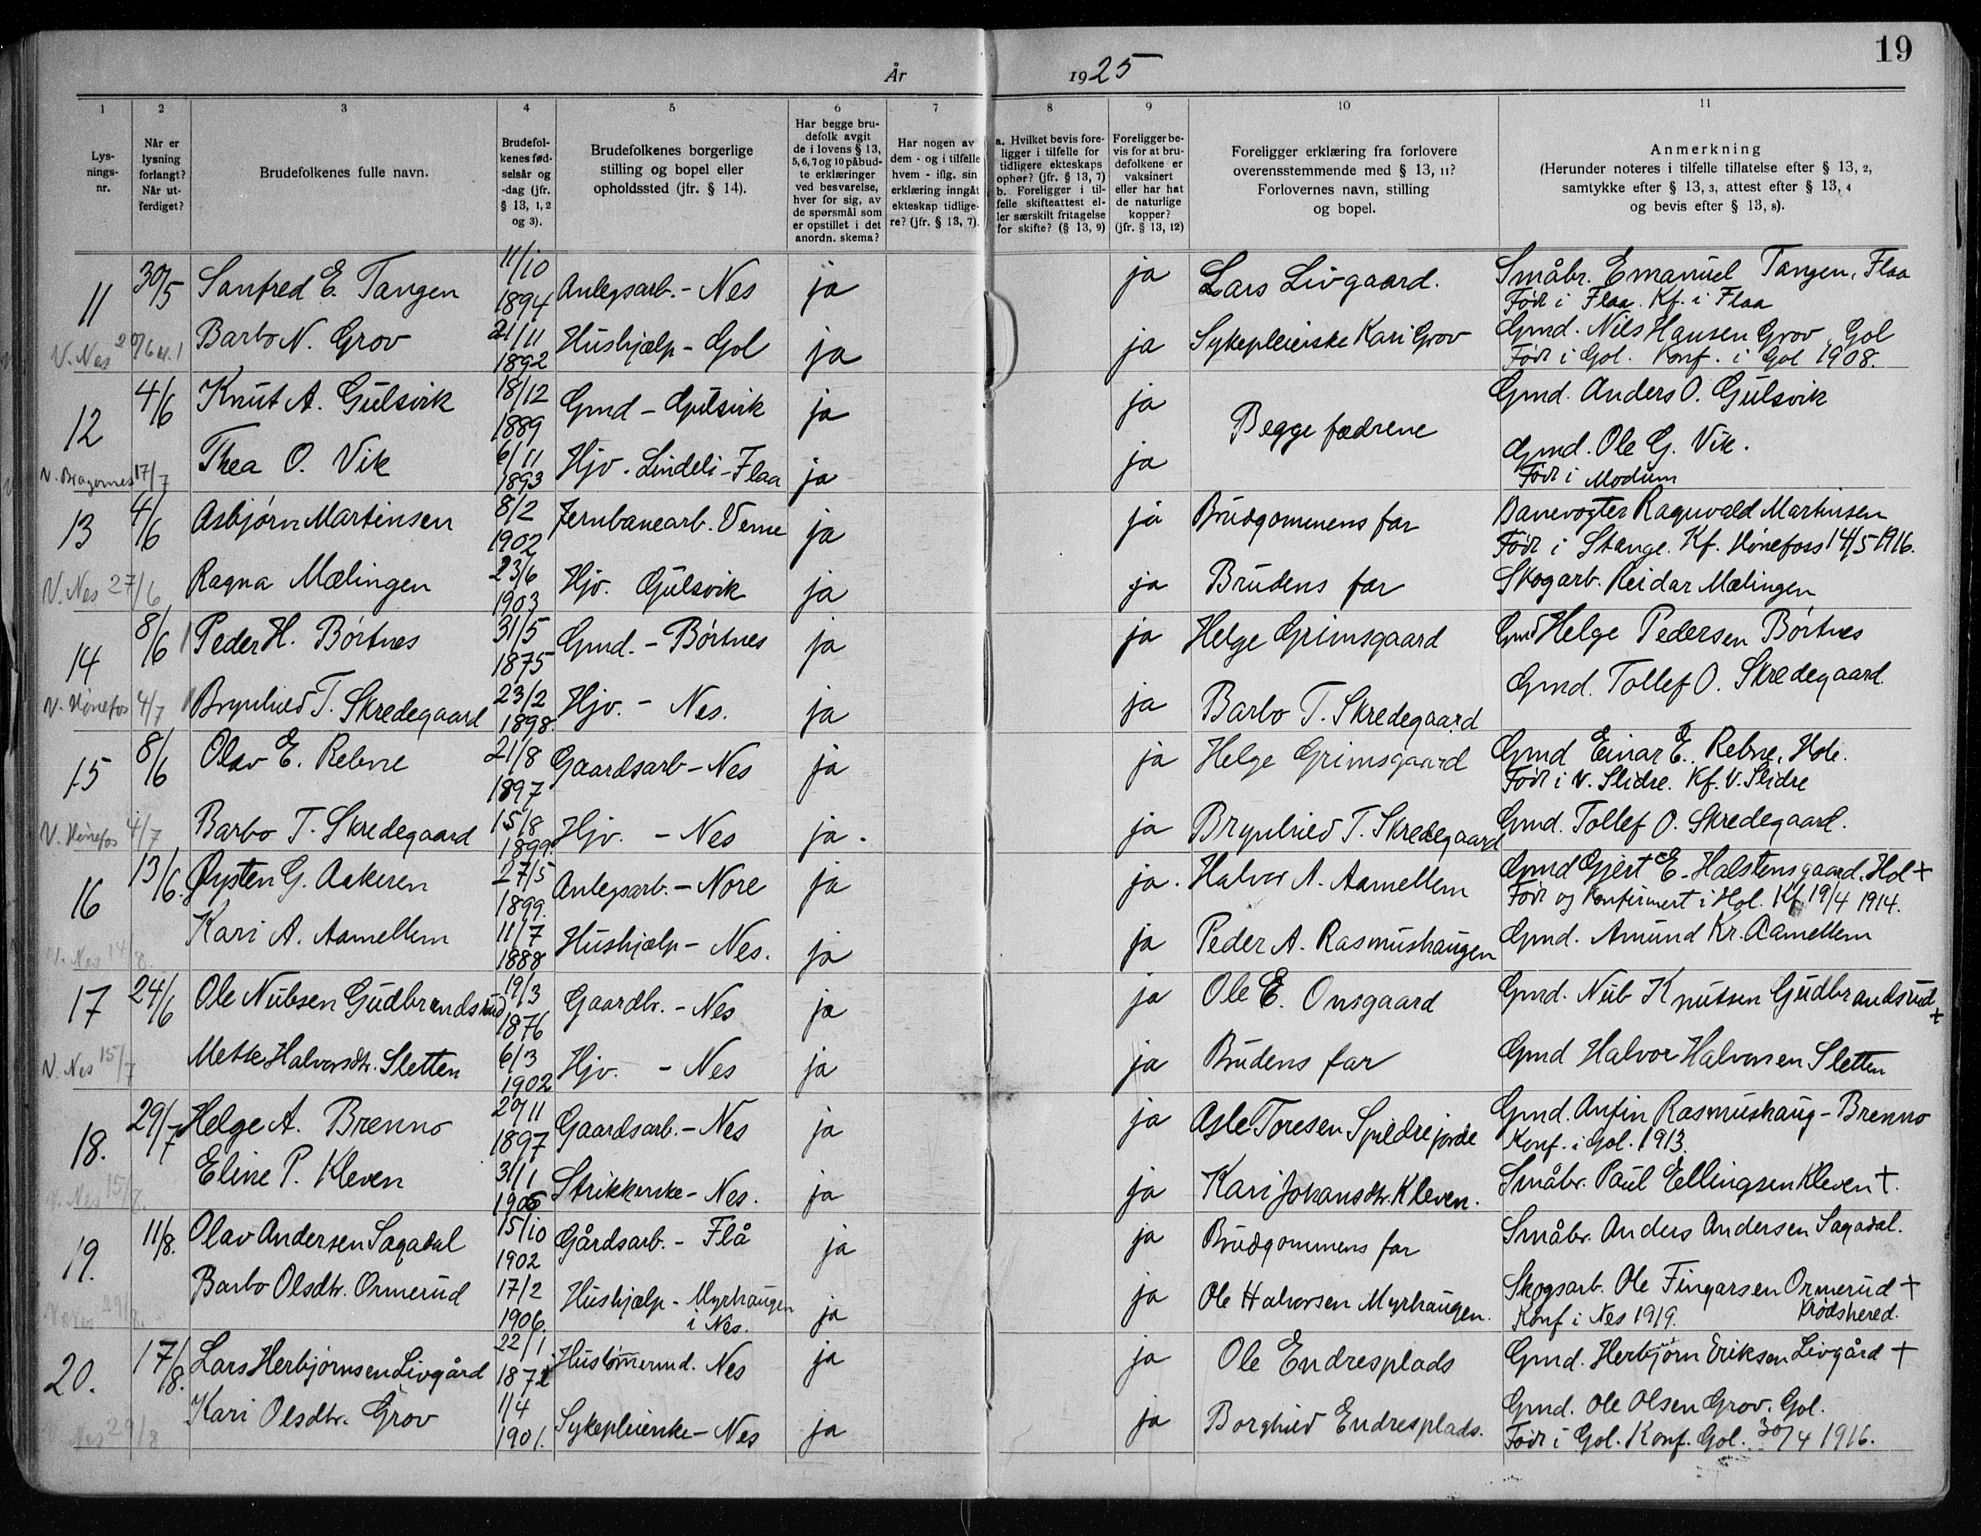 19
År 1925
1 2 3 4 5 6 7 8 9 10 11
Lys-
nings-
nr.
Når er
lysning
forlangt?
Når ut-
ferdiget?
Brudefolkenes fulle navn.
Brudefol-
kenes fød-
selsår og
-dag (jfr.
§ 13, 1, 2
og 3).
Brudefolkenes borgerlige
stilling og bopel eller
opholdssted (jfr. § 14).
Har begge bru-
defolk avgit
de i lovens § 13,
5, 6, 7 og 10 påbud-
te erklæringer
ved besvarelse,
hver for sig, av
de spørsmål som
er opstillet i det
anordn. skema?
Har nogen av
dem - og i tilfelle
hvem - iflg. sin
erklæring inngått
ekteskap tidlige-
re? (jfr. § 13, 7).
a. Hvilket bevis fore-
ligger i tilfelle for
tidligere ekteskaps
ophør? (jfr. § 13, 7)
b. Foreligger i til-
felle skifteattest el-
ler særskilt fritagelse
for skifte? (§ 13, 9)
Foreligger be-
vis for at bru-
defolkene er
vaksinert
eller har hat
de naturlige
kopper?
(jfr. § 13, 12)
Foreligger erklæring fra forlovere
overensstemmende med § 13, 11?
Forlovernes navn, stilling
og bopel.
Anmerkning
(Herunder noteres i tilfelle tillatelse efter § 13, 2,
samtykke efter § 13, 3, attest efter § 13, 4
og bevis efter § 13, 8).
11 30/5 Sanfred E. Tangen 11/10 1894 Anlegsarb. - Nes ja ja Lars Livgaard. Småbr. Emanuel Tangen, Flaa
Født i Flaa. Kf. i Flaa
V. Nes Barbo N. Grov 21/11 1892 Hushjælp - Gol ja ja Sykepleierske Kari Grov Gmd. Nils Hansen Grov, Gol
Født i Gol. Konf. i Gol 1908.
12 4/6 Knut A. Gulsvik 18/12 1889 Gmd - Gulsvik ja ja Begge fædrene Gmd. Anders O. Gulsvik
V. Bragernes 17/7 Thea O. Vik 6/11 1893 Hjv. Lindeli - Flaa ja ja Gmd. Ole G. Vik.
Født i Modum
13 4/6 Asbjørn Martinsen 8/2 1902 Jernbanearb. Veme ja ja Brudgommens far Banevogter Ragnvald Martinsen
Født i Stange. Kf. Hønefoss 14/5 1916.
V. Nes 27/6 Ragna Mælingen 23/6 1903 Hjv. Gulsvik ja ja Brudens far Skogarb. Reidar Mælingen
14 8/6 Peder H. Børtnes 31/5 1875 Gmd. - Børtnes ja ja Helge Grimsgaard Gmd Helge Pedersen Børtnes
V. Hønefos 4/7 Brynhild T. Skredegaard 23/2 1898. Hjv. - Nes. ja ja Barbo T. Skredegaard Gmd. Tollef O. Skredegaard.
15 8/6 Olav E. Rebne 21/8 1897 Gaardsarb - Nes ja ja Helge Grimsgaard Gmd Einar E. Rebne, Hole.
Født i V. Slidre. Kf. V. Slidre
V. Hønefos 4/7 Barbo T. Skredegaard 15/8 1899. Hjv. - Nes ja. ja Brynhild T. Skredegaard Gmd. Tollef O. Skredegaard.
16 13/6. Øysten G. Aakeren 27/5 1899. Anlegsarb. - Nore ja ja. Halvor A. Aamellem Gmd Gjert E. Halstensgaard. Hol +
Født og konfirmert i Hol. Kf 19/4 1914.
V. Nes 14/8. Kari A. Aamellem 11/7 1888 Hushjælp - Nes. ja ja Peder A. Rasmushaugen Gmd. Amund Kr. Aamellem
17 24/6 Ole Nubsen Gudbrandsrud 19/3 1876 Gaardbr. - Nes ja ja Ole E. Onsgaard Gmd. Nub Knutsen Gudbrandsrud +
V. Nes 15/7 Mette Halvorsdtr. Sletten 6/3 1902 Hjv. - Nes ja ja Brudens far Gmd Halvor Halvorsen Sletten
18. 29/7 Helge A. Brenno 20/11 1897 Gaardsarb. - Nes ja ja Asle Toresen Spildrejorde Gmd. Anfin Rasmushaug - Brenno
Konf. i Gol. 1913.
V. Nes 15/ Eline P. Kleven 31/1 Strikkerske - Nes. ja ja Kari Johansdtr. Kleven. Småbr. Paul Ellingsen Kleven +.
19. 11/8. Olav Andersen Sagadal 15/10 1902 Gårdsarb. - Flå ja ja Brudgommens far Småbr. Anders Andersen Sagadal.
29/8. Barbo Olsdtr. Ormerud 17/2 1906 Hushjælp - Myrhaugen
i Nes. ja ja Ole Halvorsen Myrhaugen. Skogsarb. Ole Fingarsen Ormerud +
Konf i Nes 1919. Krødshered.
20. 17/8. Lars Herbjørnsen Livgård 22/1 Hustømmerm. Nes ja ja Ole Endresplads Gmd. Herbjørn Eriksen Livgård +
Nes 29/8 Kari Olsdtr. Grov 1/4 1901. Sykepleierske - Nes ja ja Borghild Endresplads. Gmd. Ole Olsen Grov. Gol.
Født i Gol. Konf. Gol. 30/4 1916.